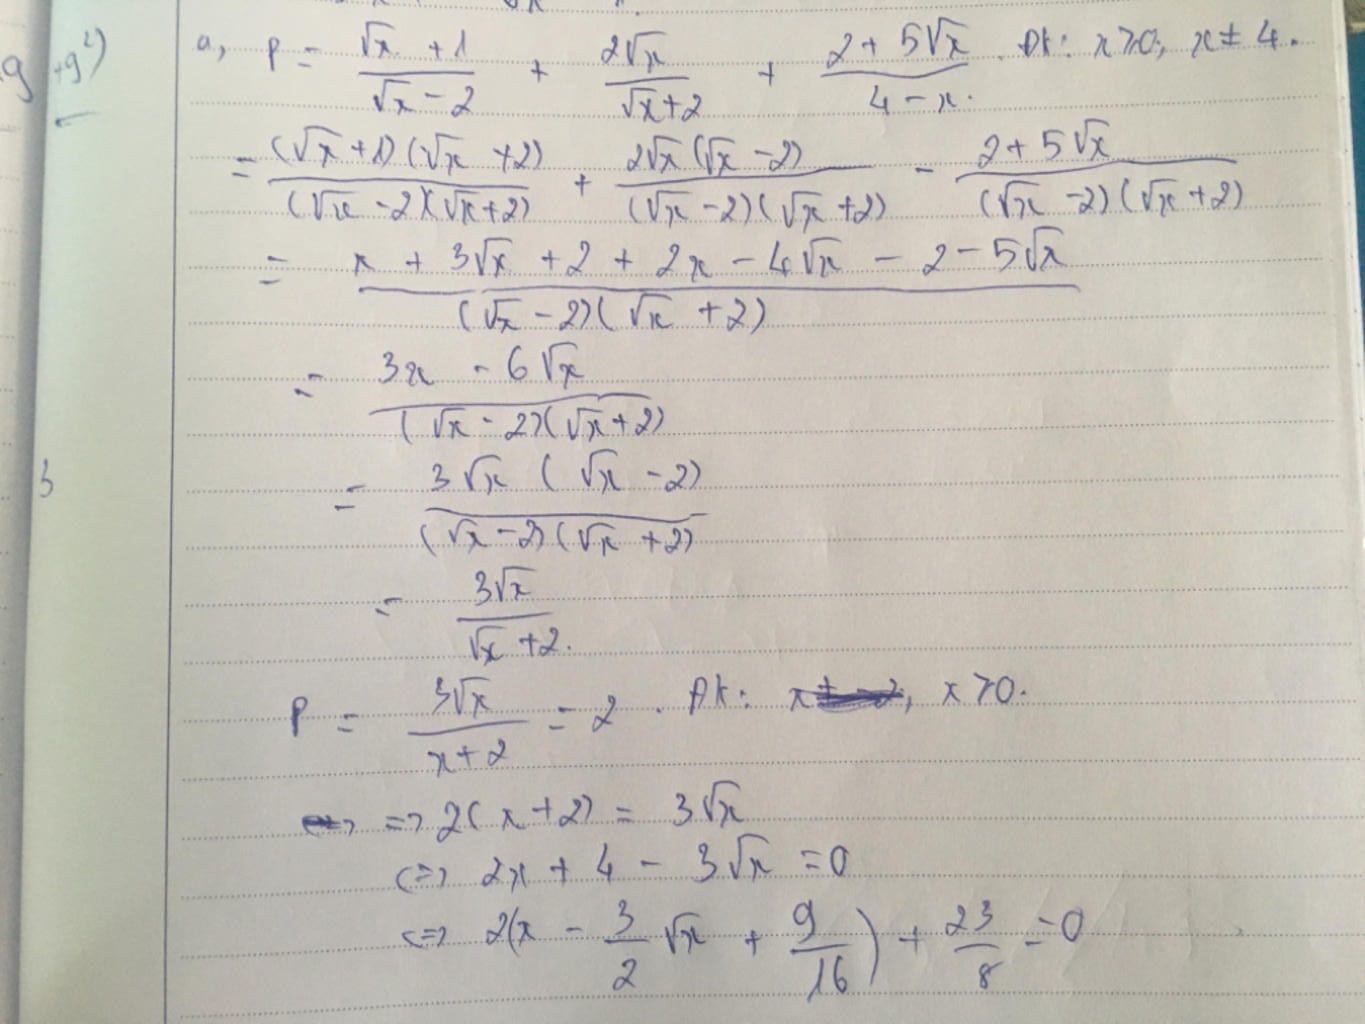 g +g²)
a, P = (√x + 1)/(√x - 2) + 2√x/(√x+2) + (2 + 5√x)/(4 - x). Đk: x≥0; x ≠ 4.
= (√x + 1)(√x + 2)/((√x - 2)(√x + 2)) + 2√x(√x - 2)/((√x - 2)(√x + 2)) - (2 + 5√x)/((√x - 2)(√x + 2))
= (x + 3√x + 2 + 2x - 4√x - 2 - 5√x)/((√x - 2)(√x + 2))
= (3x - 6√x)/((√x - 2)(√x + 2))
3
= 3√x (√x - 2)/((√x - 2)(√x + 2))
= 3√x/(√x + 2).
P = 3√x/(x + 2) = 2. Đk: x, x >0.
=> 2(x + 2) = 3√x
<=> 2x + 4 - 3√x = 0
<=> 2(x - 3/2 √x + 9/16) + 23/8 = 0